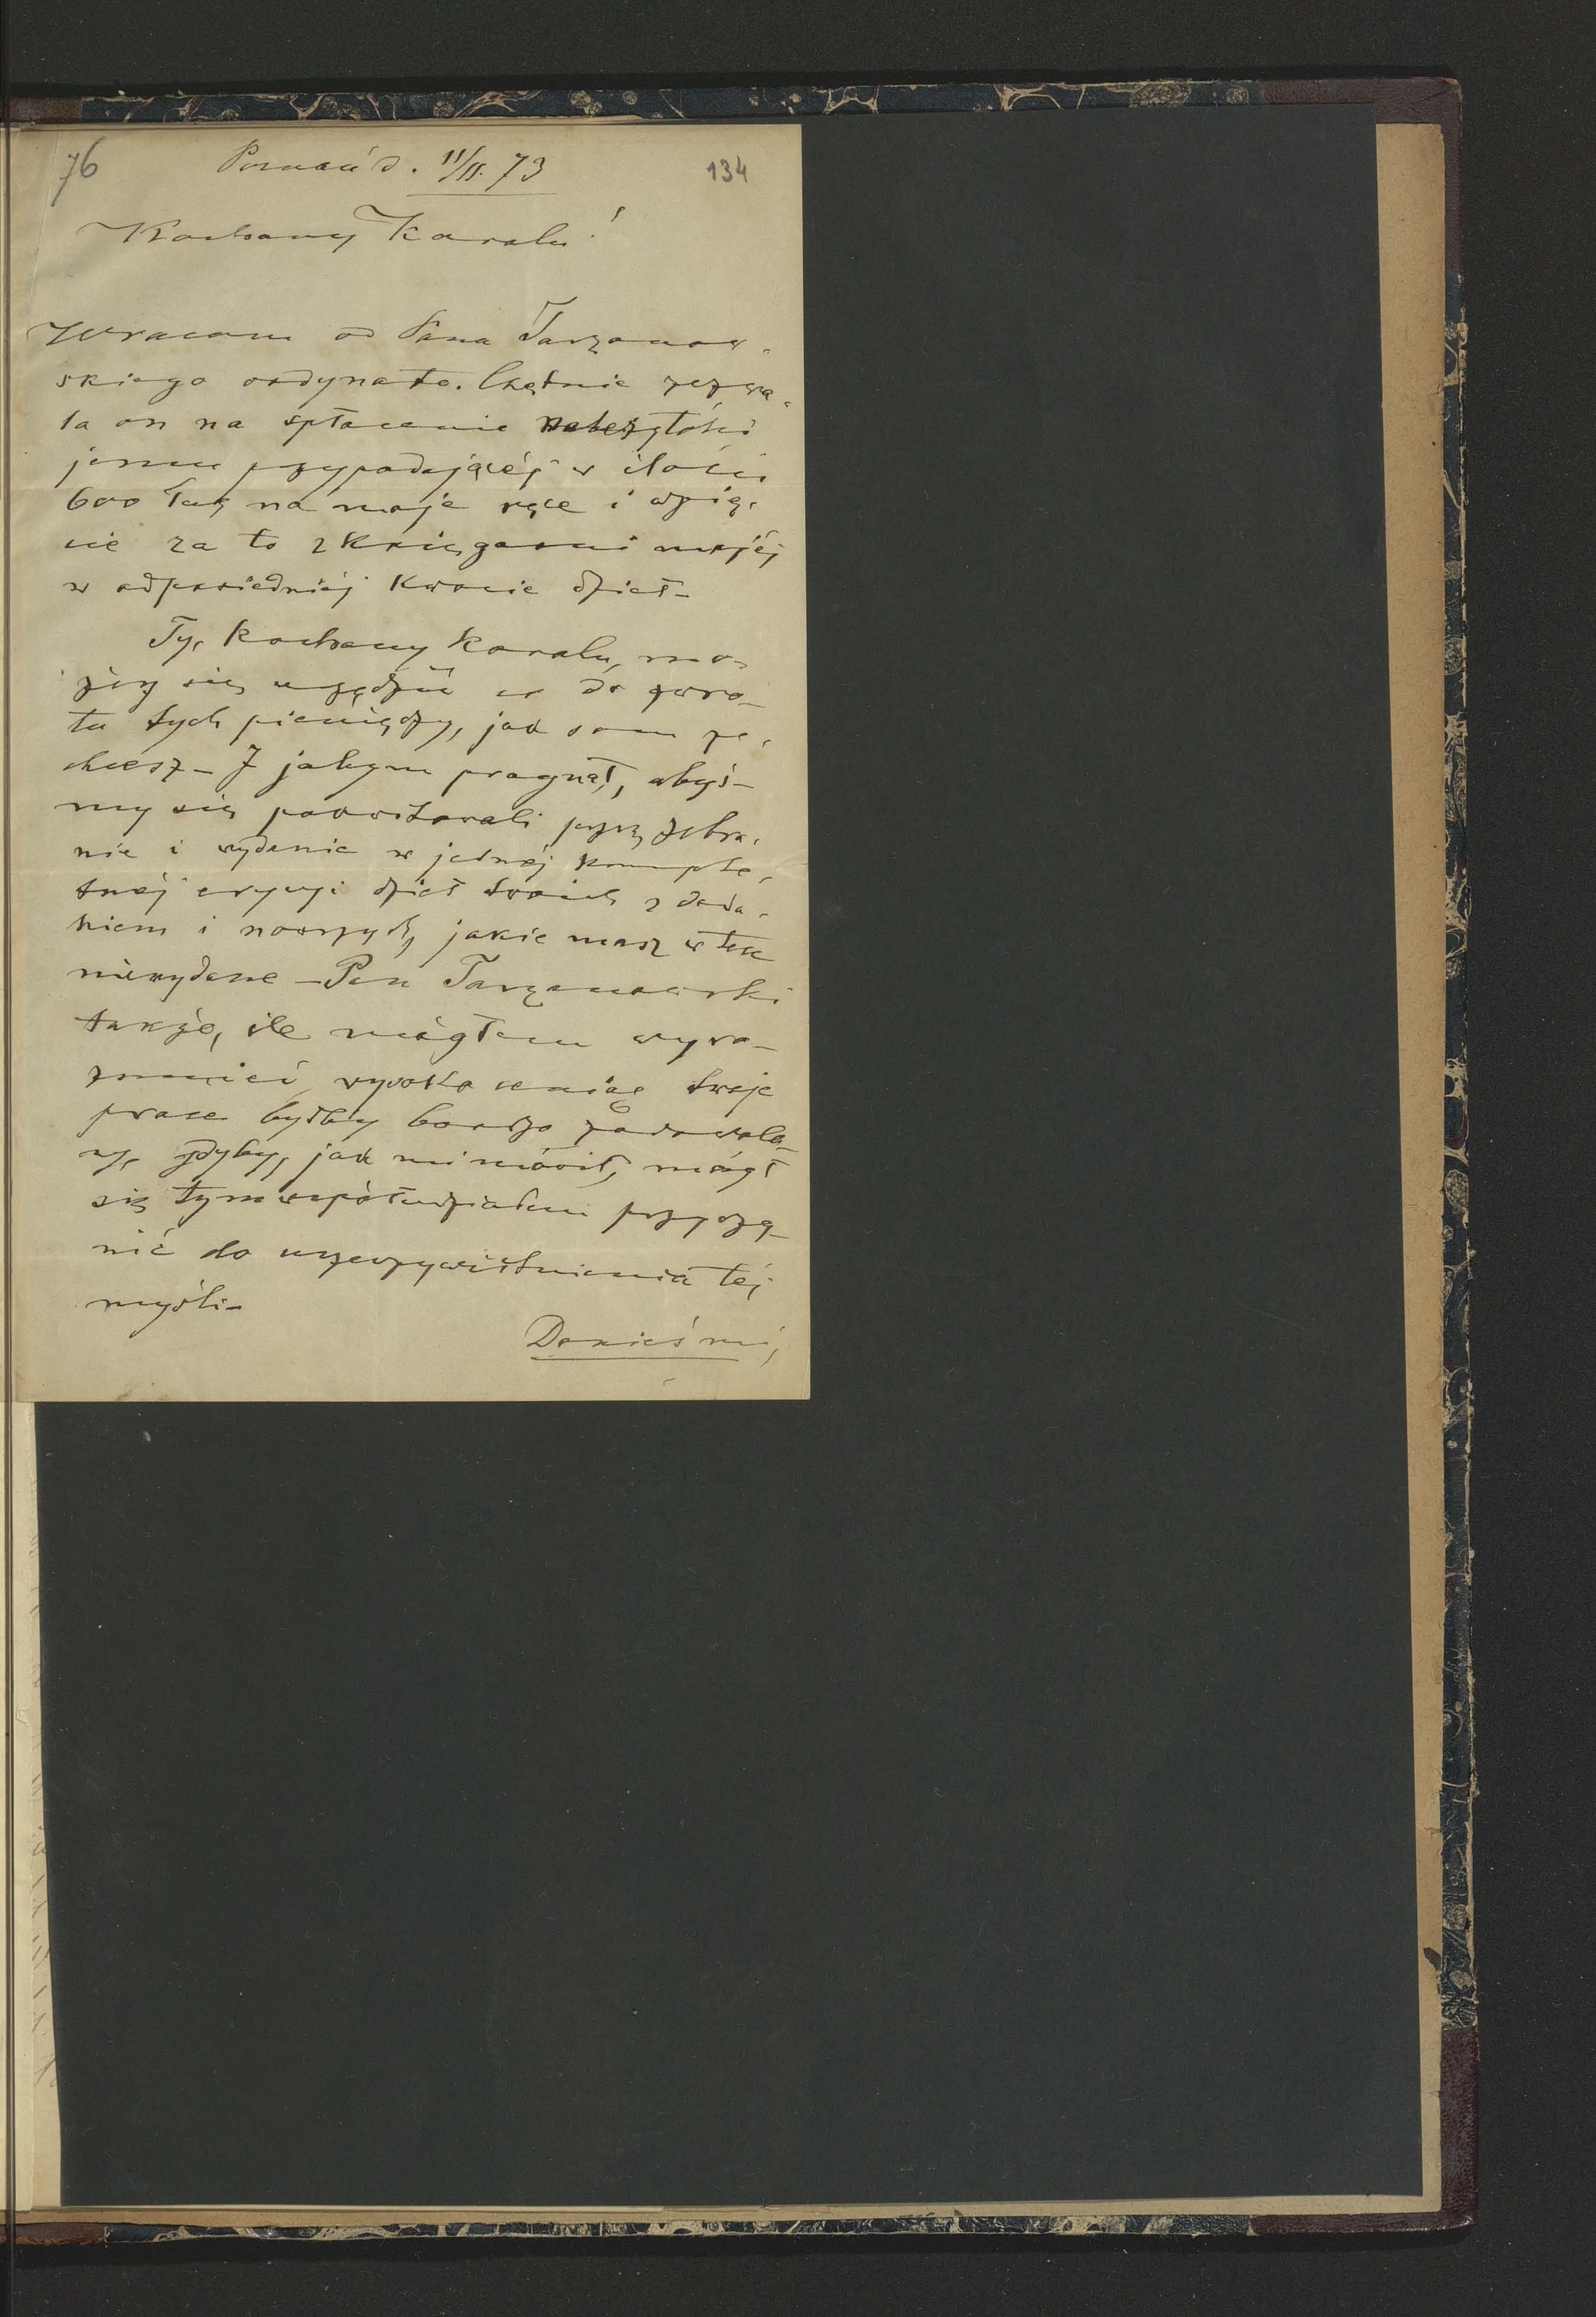 76 Poznań d. 11/II. 73 134
Kochany Karolu!
Wracam od Pana Tarzanow-
skiego ordynata. Chętnie zezwa-
la on na spłacenie należytości
jemu przypadającéj w ilości
600 Tal na moje ręce i wzię-
cie za to z Księgarni mojéj
w odpowiedniéj kwocie dzieł_
Ty, kochany Karolu, mo-
żesz się urządzić co do zwro-
tu tych pieniędzy, jak sam ze-
chcesz_ I jabym pragnął, abyś-
my się powitali przez zebra-
nie i wydanie w jednéj komple-
tnéj edycyi dzieł twoich z doda-
niem i nowszych, jakie masz w tece
niewydane_ Pan Tarzanowski
także, ile mógłem wyro-
zumieć, wysoko ceniąc twoje
prace byłby bardzo zadowolo-
ny, gdyby, jak mi mówił, mógł
się tym współudziałem przyczy-
nić do urzeczywistnienia téj
myśli_
Donieś mi,